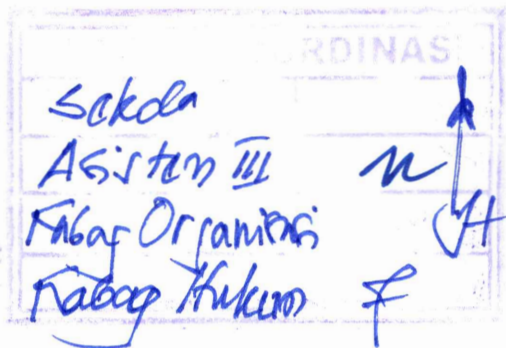 RDINAS
Sekda
Asisten III
Kabag Organisasi
Kabag Hukum